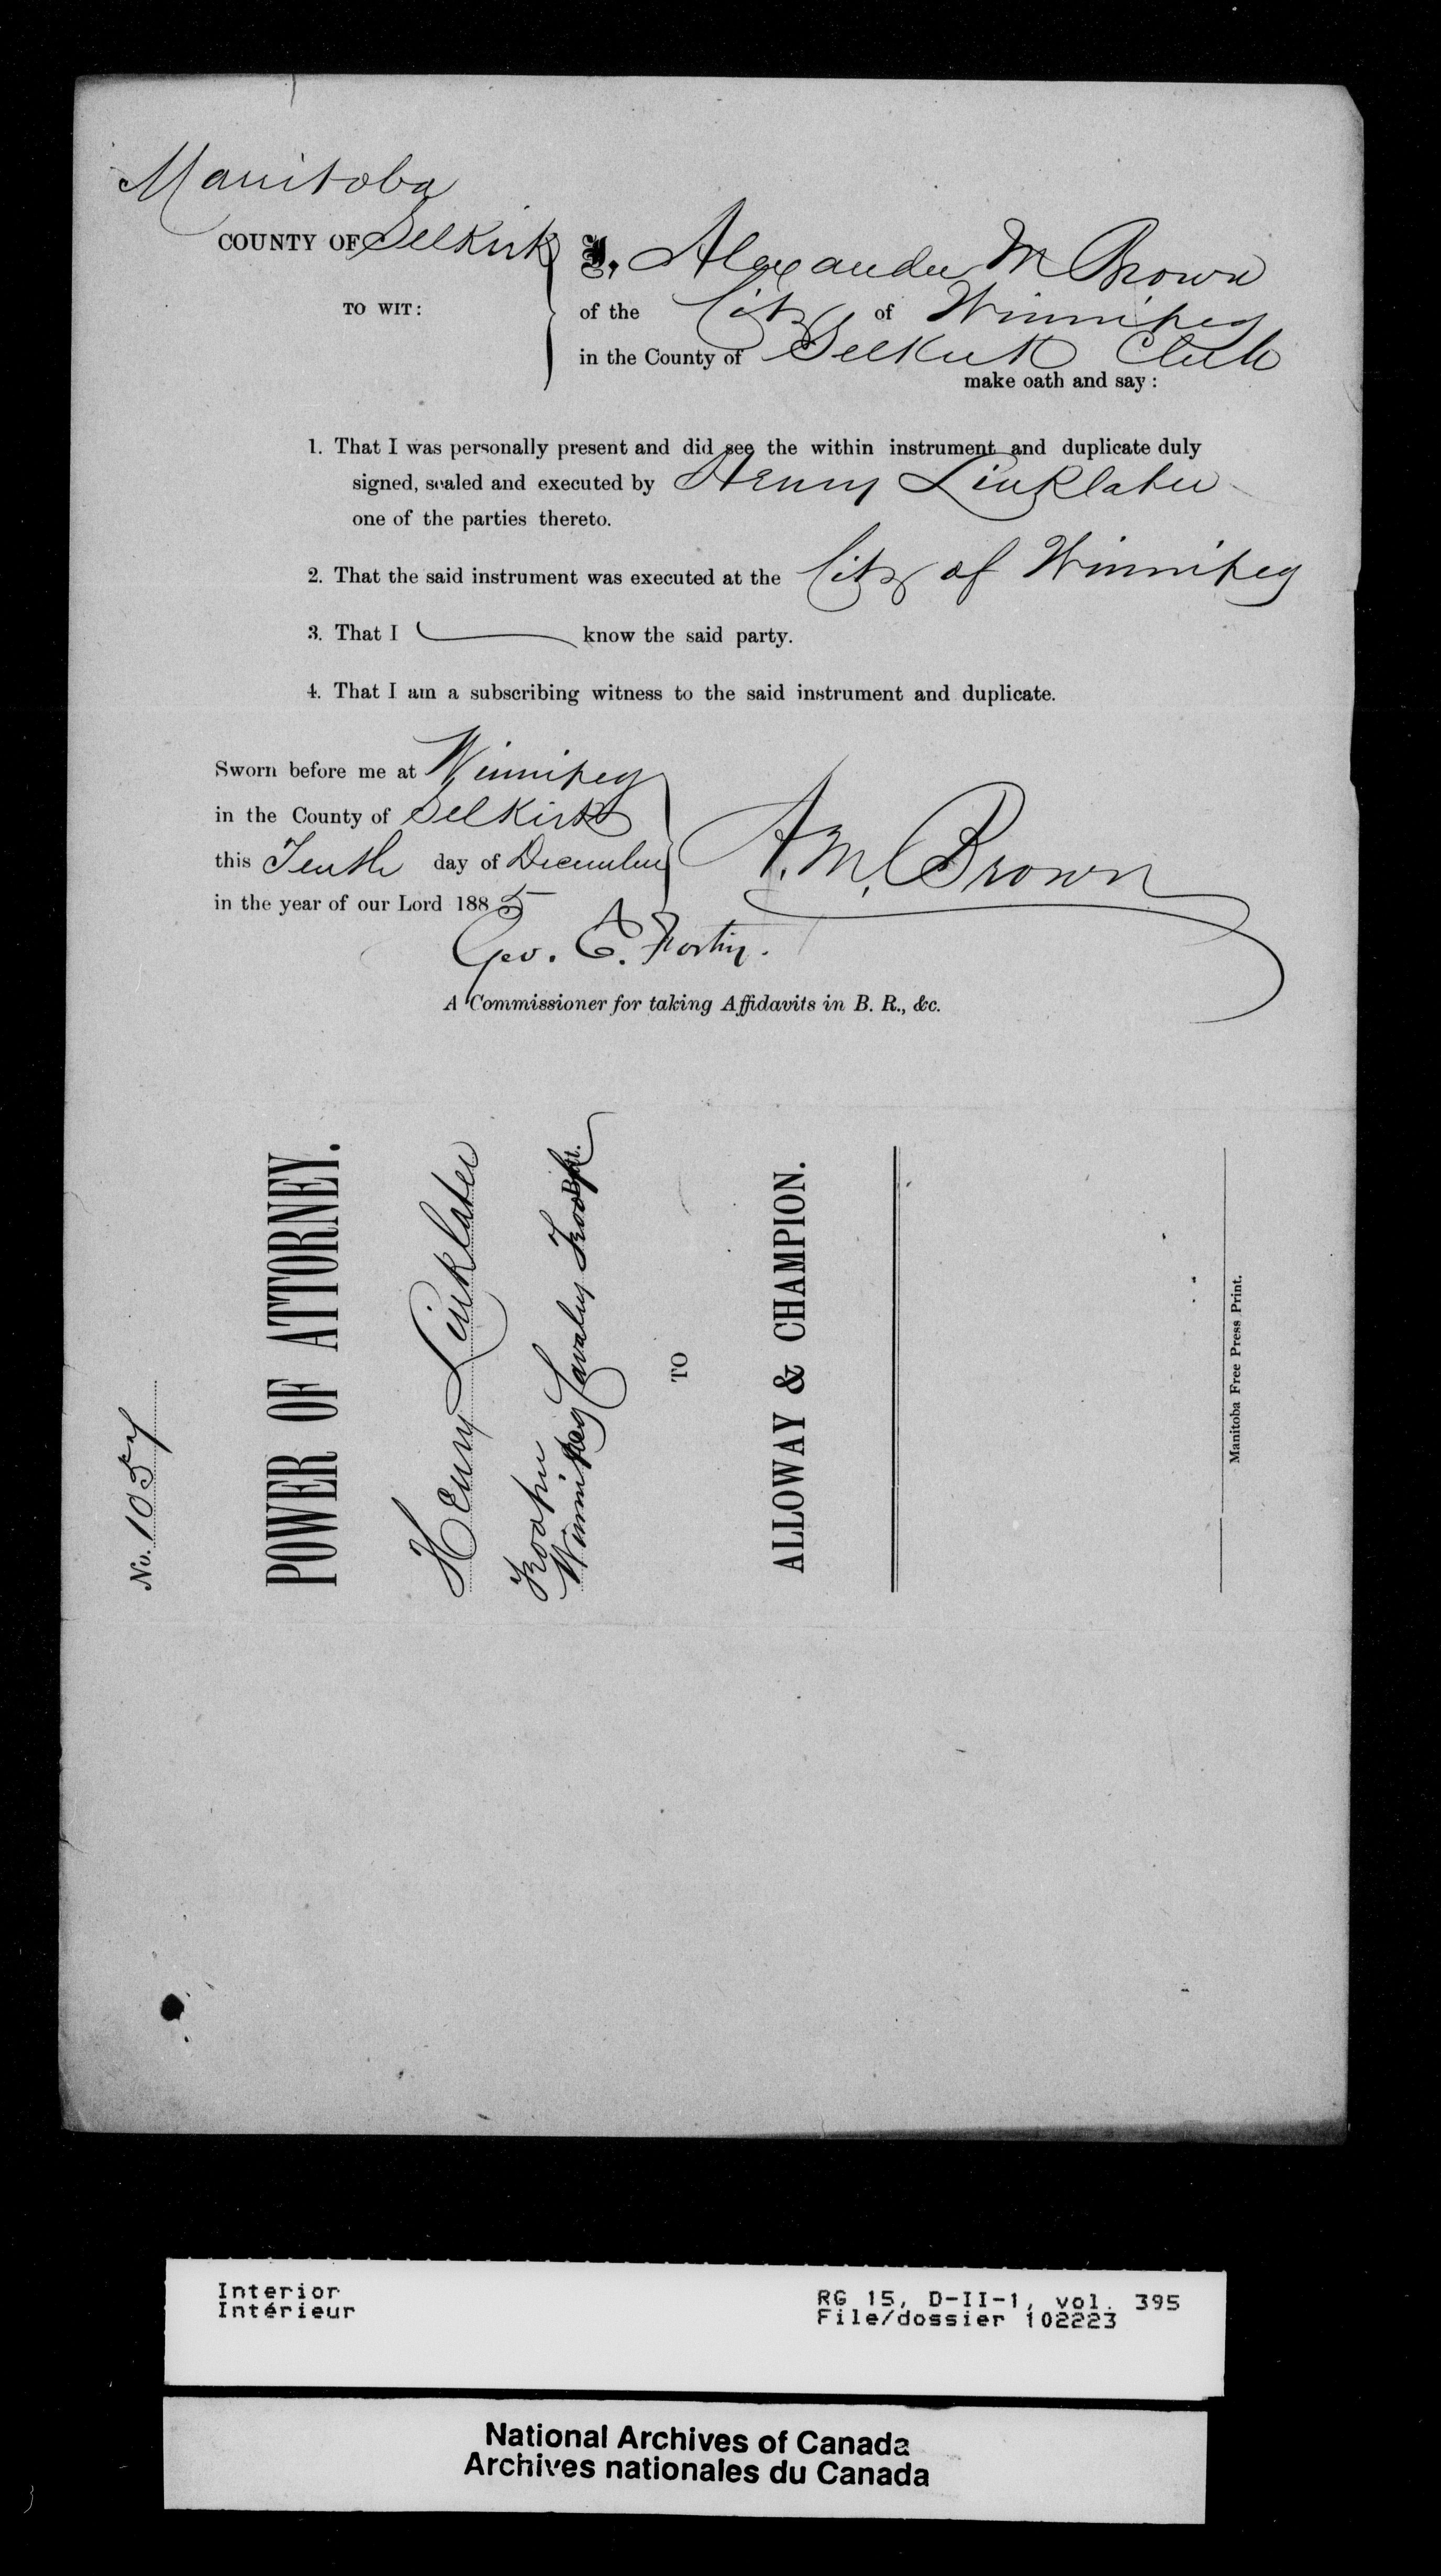 Manitoba
COUNTY OF Selkirk
TO WIT:
I, Alexander M Brown
of the City of Winnipeg
in the County of Selkirk Clerk
make oath and say:
1. That I was personally present and did see the within instrument and duplicate duly
signed, sealed and executed by Henry Linklater
one of the parties thereto.
2. That the said instrument was executed at the City of Winnipeg
3. That I know the said party.
4. That I am a subscribing witness to the said instrument and duplicate.
Sworn before me at Winnipeg
in the County of Selkirk
this Tenth day of December
in the year of our Lord 1885
A. M. Brown
Geo. E. Fortin.
A Commissioner for taking Affidavits in B. R., &c.
No. 1057
POWER OF ATTORNEY.
Henry Linklater
Trooper
Winnipeg Cavalry Troop
TO
ALLOWAY & CHAMPION.
Manitoba Free Press Print.
Interior
Intérieur
RG 15, D-II-1, vol. 395
File/dossier 102223
National Archives of Canada
Archives nationales du Canada